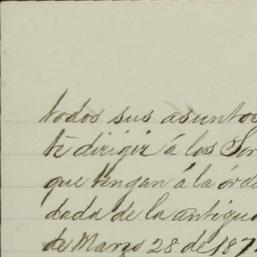 todos sus asuntos
te dirigir á los Sor
que tengan á la órde
dada de la antigua
de Marzo 28 de 187